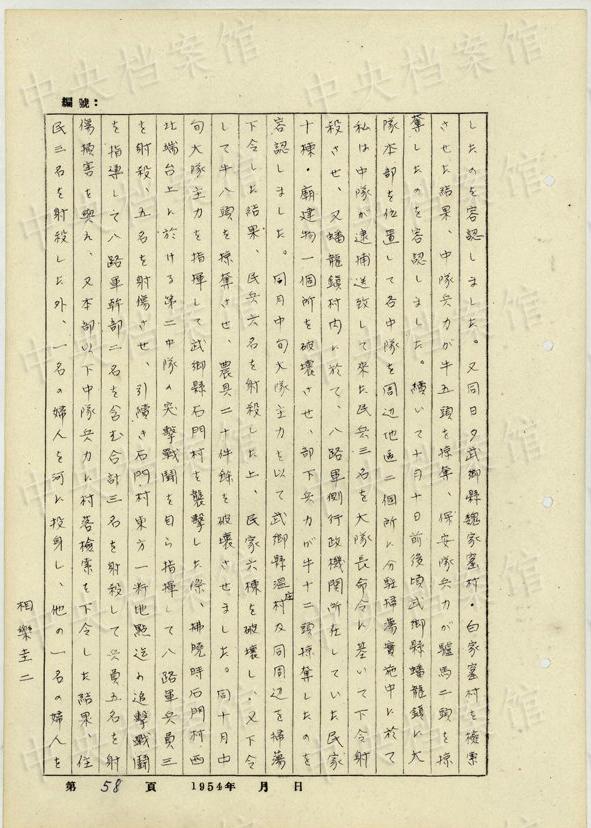 編號：
したのを容認しました。又同日夕武鄉縣魏家窰村・白家窰村を檢索
させた結果、中隊兵力が牛五頭を掠奪、保安隊兵力が驢馬二頭を掠
奪したのを容認しました。續いて十月十日前後頃武鄉縣蟠龍鎮に大
隊本部を位置して各中隊を周辺地區二個所に分駐掃蕩實施中に於て
私は中隊が逮捕送致して來た民兵三名を大隊長命令に基いて下令射
殺させ、又蟠龍鎮村內に於て、八路軍側行政機関所在していた民家
十棟・廟建物一個所を破壞させ、部下兵力が牛十二頭掠奪したのを
容認しました。同月中旬大隊主力を以て武鄉縣溫庄村及同周辺を掃蕩
下令した結果、民兵六名を射殺した上、民家六棟を破壞し、又下令
して牛八頭を掠奪させ、農具二十件餘を破壞させました。同十月中
旬大隊主力を指揮して武鄉縣石門村を襲擊した際、拂曉時石門村西
北端台上に於ける第二中隊の突擊戰鬪を自ら指揮して八路軍兵員三
を射殺、五名を射傷させ、引續き石門村東方一粁地點迄の追擊戰鬪
を指導して八路軍幹部二名を含む合計三名を射殺して兵員五名を射
傷損害を與え、又本部以下中隊兵力に村落檢索を下令した結果、住
民三名を射殺した外、一名の婦人を河に投身し、他の一名の婦人を
相樂圭二
第 58 頁 1954年 月 日
中央档案馆